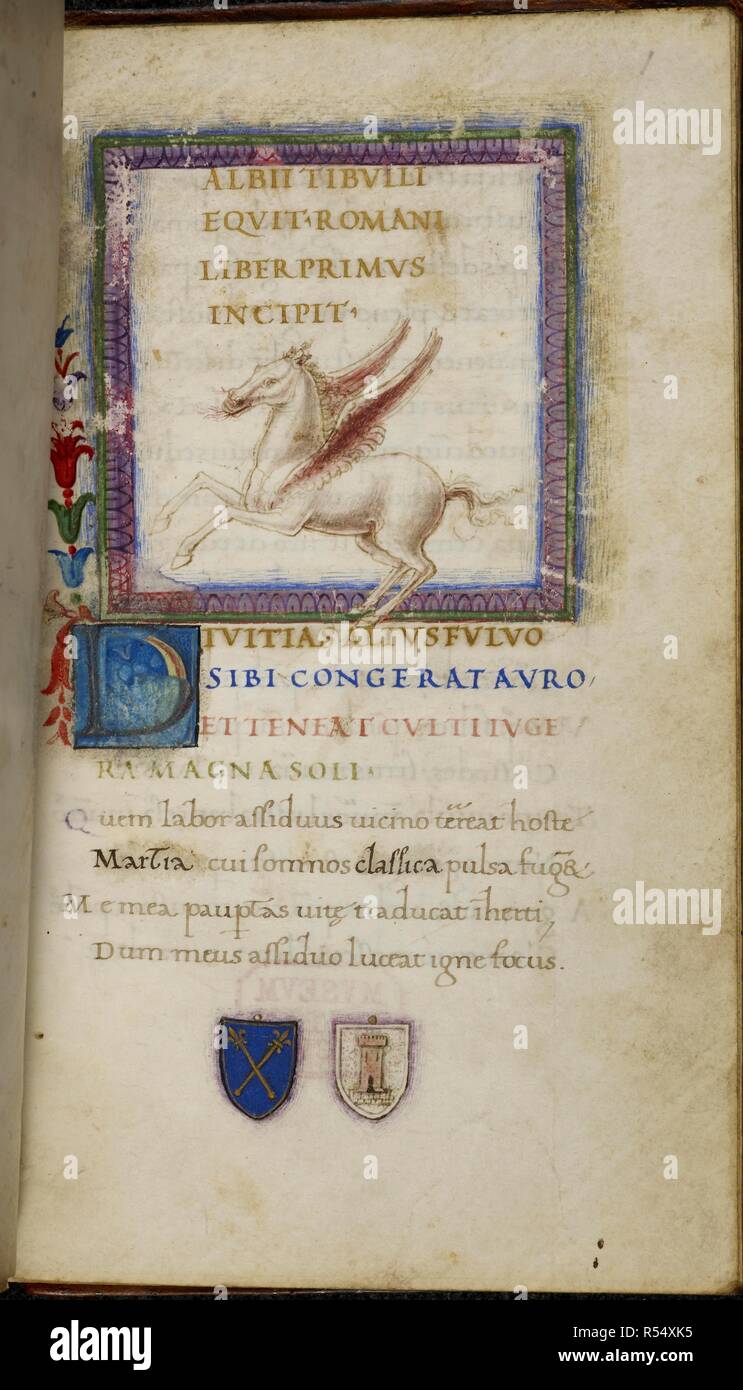 1
ALBII TIBVLLI
EQVIT· ROMANI
LIBER PRIMVS
INCIPIT·
DIVITIAS ALIUS FULVO
SIBI CONGERAT AVRO
ET TENEAT CVLTI IVGE
RA MAGNA SOLI·
Quem labor assiduus uicino terreat hoste
Martia cui somnos classica pulsa fug&
Me mea paup̄tas uitę traducat inherti
Dum meus assiduo luceat igne focus.
MVSEVM
alamy
Image ID: R54XK5
www.alamy.com